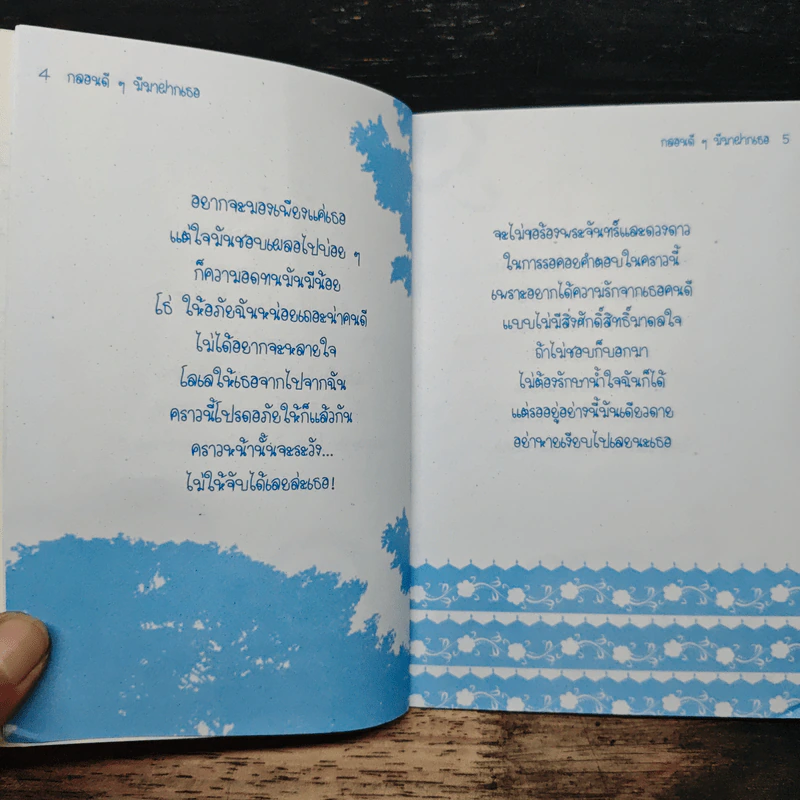 4 กลอนดี ๆ มีมาฝากเธอ
อยากจะมองเพียงแค่เธอ
แต่ใจมันชอบเผลอไปบ่อย ๆ
ก็ความอดทนมันมีน้อย
โธ่ ให้อภัยฉันหน่อยเถอะน่าคนดี
ไม่ได้อยากจะหลายใจ
โลเลให้เธอจากไปจากฉัน
คราวนี้โปรดอภัยให้ก็แล้วกัน
คราวหน้านั้นจะระวัง...
ไม่ให้จับได้เลยล่ะเธอ!
กลอนดี ๆ มีมาฝากเธอ 5
จะไม่ขอร้องพระจันทร์และดวงดาว
ในการรอคอยคำตอบในคราวนี้
เพราะอยากได้ความรักจากเธอคนดี
แบบไม่มีสิ่งศักดิ์สิทธิ์มาดลใจ
ถ้าไม่ชอบก็บอกมา
ไม่ต้องรักษาน้ำใจฉันก็ได้
แต่รออยู่อย่างนี้มันเดียวดาย
อย่าหายเงียบไปเลยนะเธอ